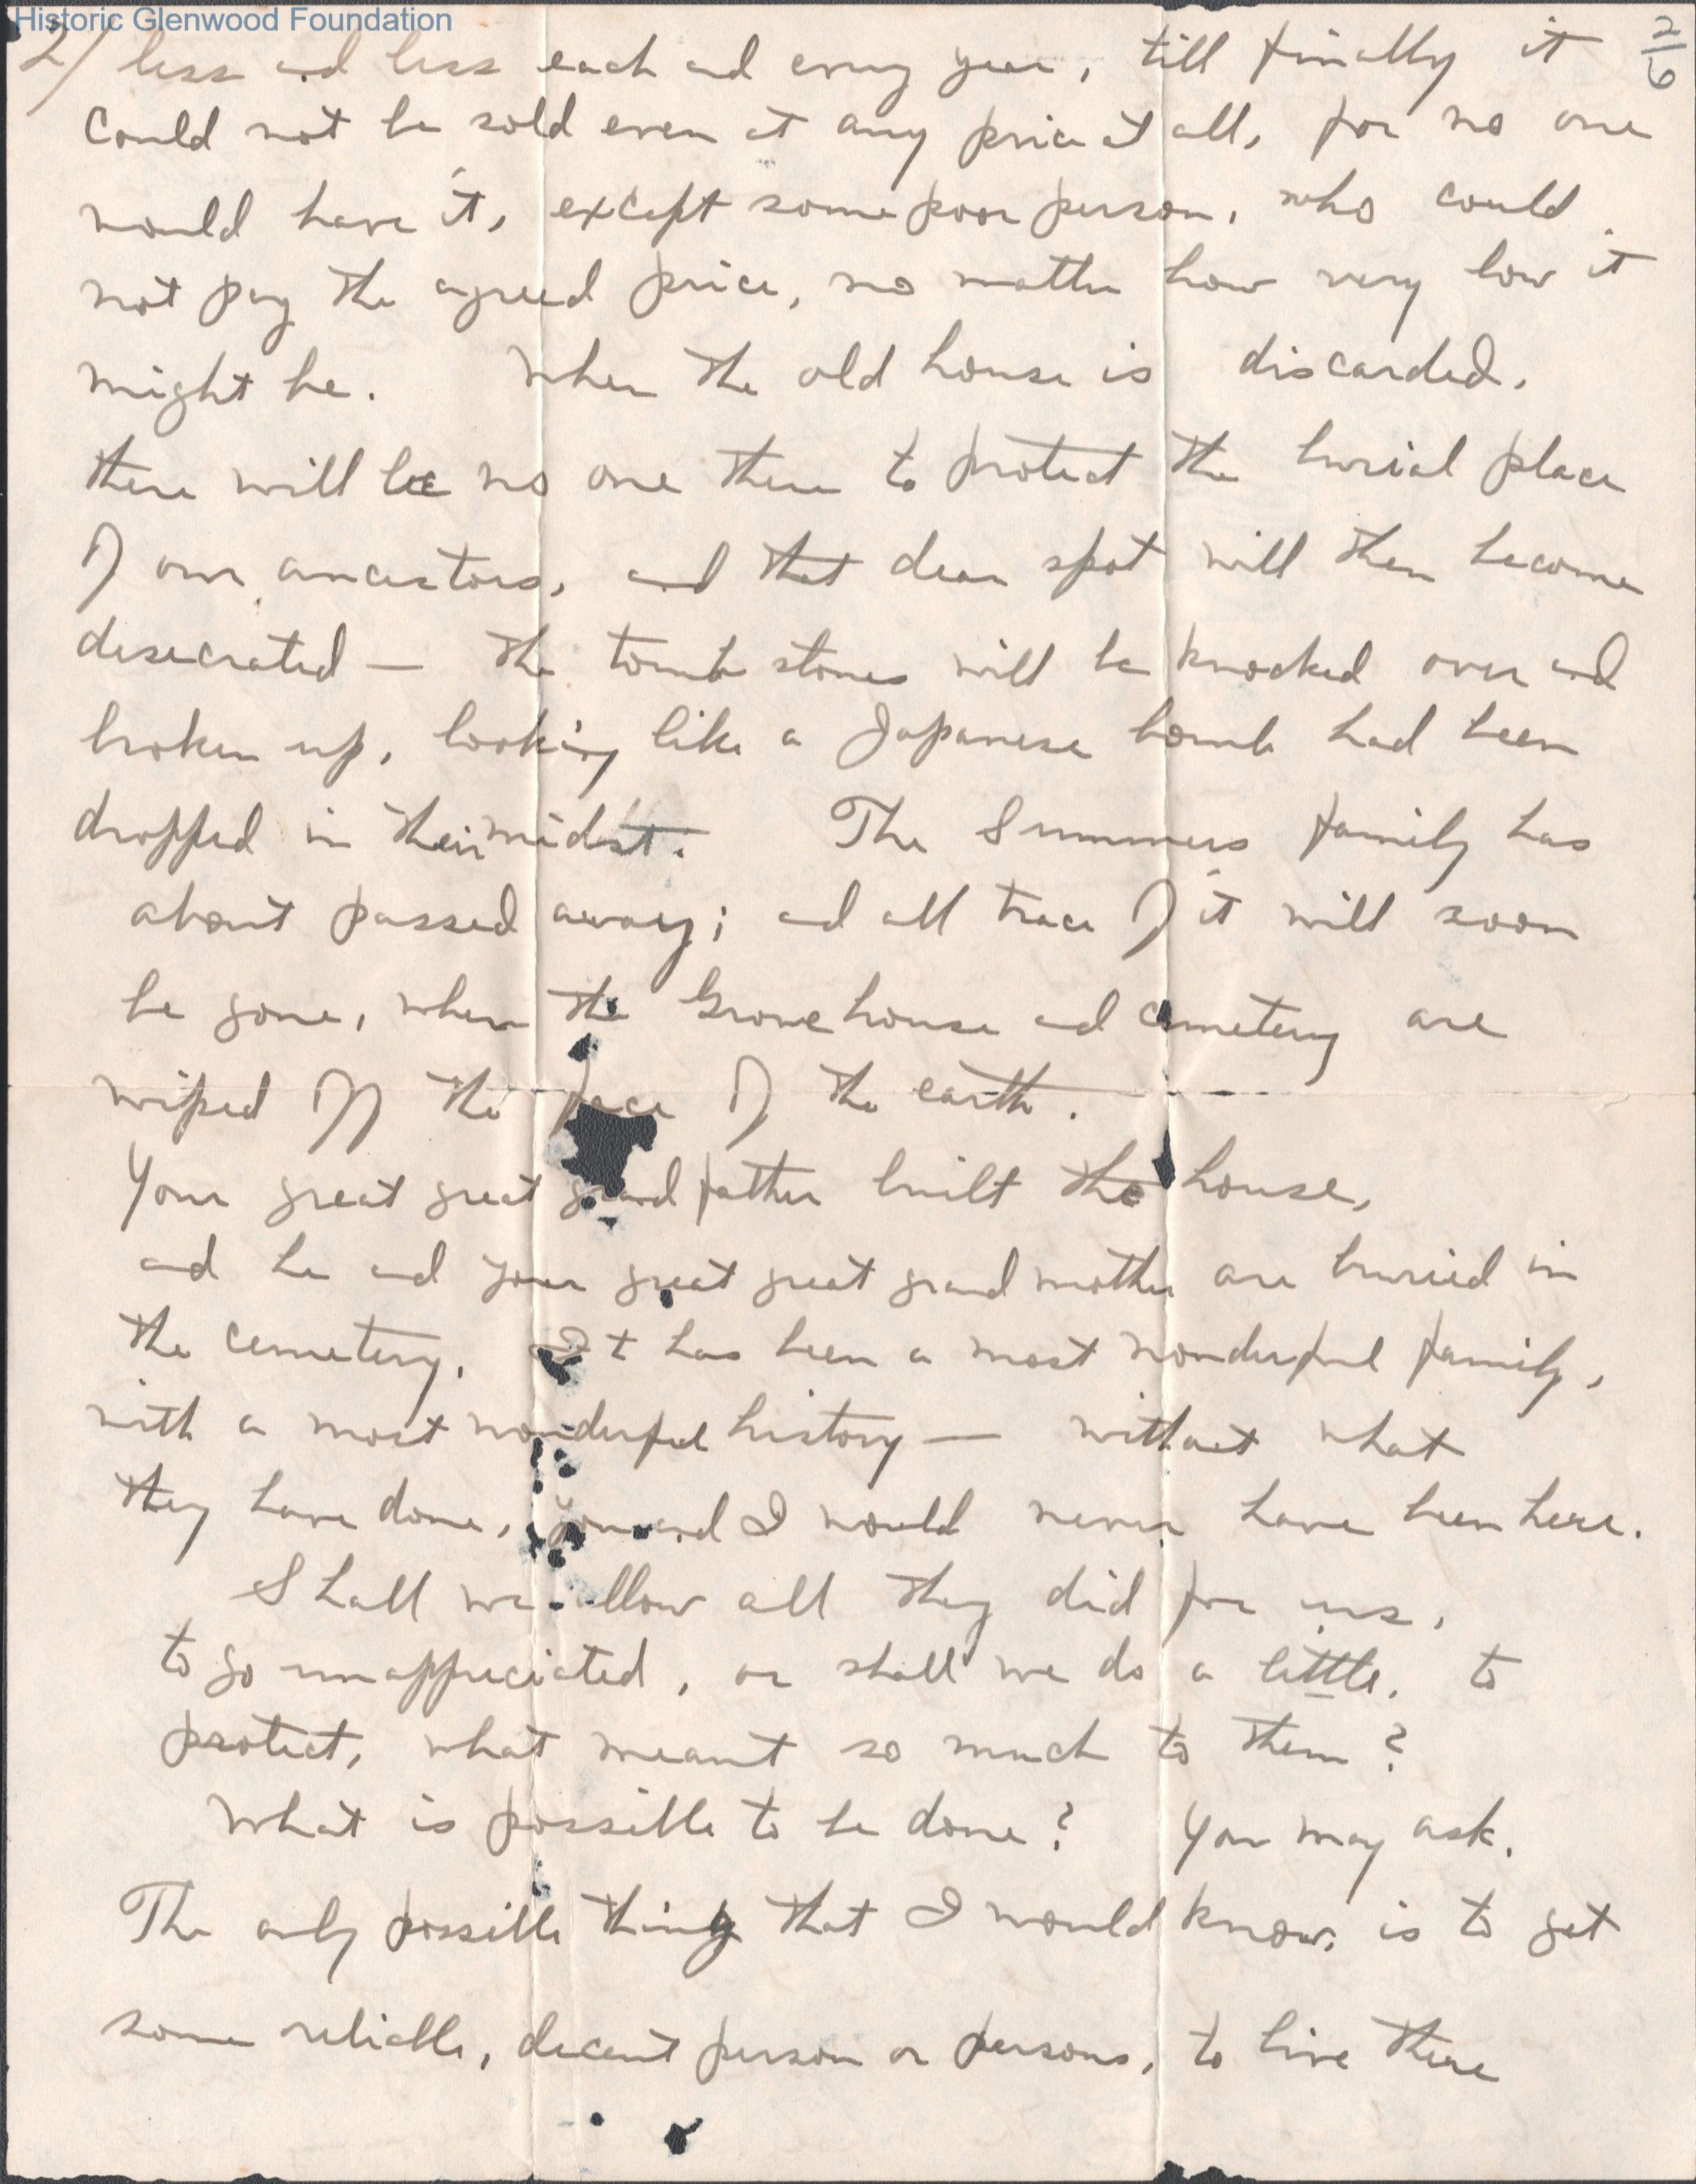 Historic Glenwood Foundation
2/6
2/ less and less each and every year, till finally it
could not be sold even at any price at all, for no one
would have it, except some poor person, who could
not pay the agreed price, no matter how very low it
might be. When the old house is discarded,
there will be no one there to protect the burial place
of our ancestors, and that dear spot will then become
desecrated — the tomb stones will be knocked over and
broken up, looking like a Japanese bomb had been
dropped in their midst. The Summers family has
about passed away; and all trace of it will soon
be gone, when the Grove house and cemetery are
wiped off the face of the earth.
Your great great grand father built the house,
and he and your great great grand mother are buried in
the cemetery. It has been a most wonderful family,
with a most wonderful history — without what
they have done, you and I would never have been here.
Shall we allow all they did for us,
to go unappreciated, or shall we do a little, to
protect, what meant so much to them?
What is possible to be done? You may ask.
The only possible thing that I would know, is to get
some reliable, decent person or persons, to live there